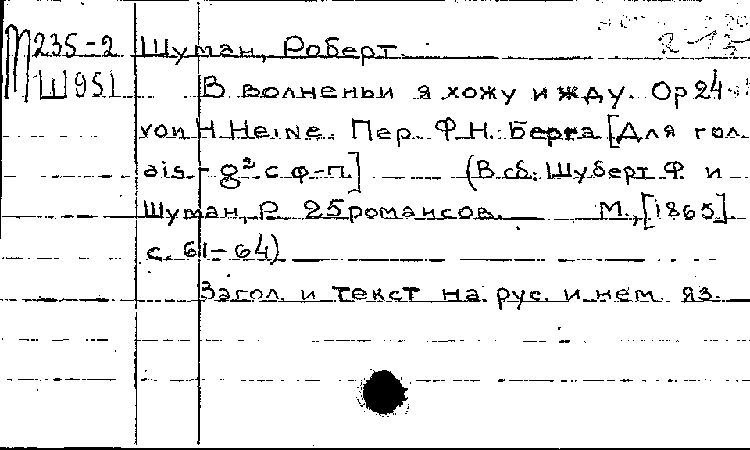 М235-2 Шуман, Роберт.
Ш951 В волненьи я хожу и жду. Ор 24
von H. Heine. Пер. Ф.Н. Берга [Для гол.
ais - g² с ф-п.] (В сб.: Шуберт Ф. и
Шуман, Р. 25 романсов. М., [1865].
с. 61-64)
Загол. и текст на рус. и нем. яз.